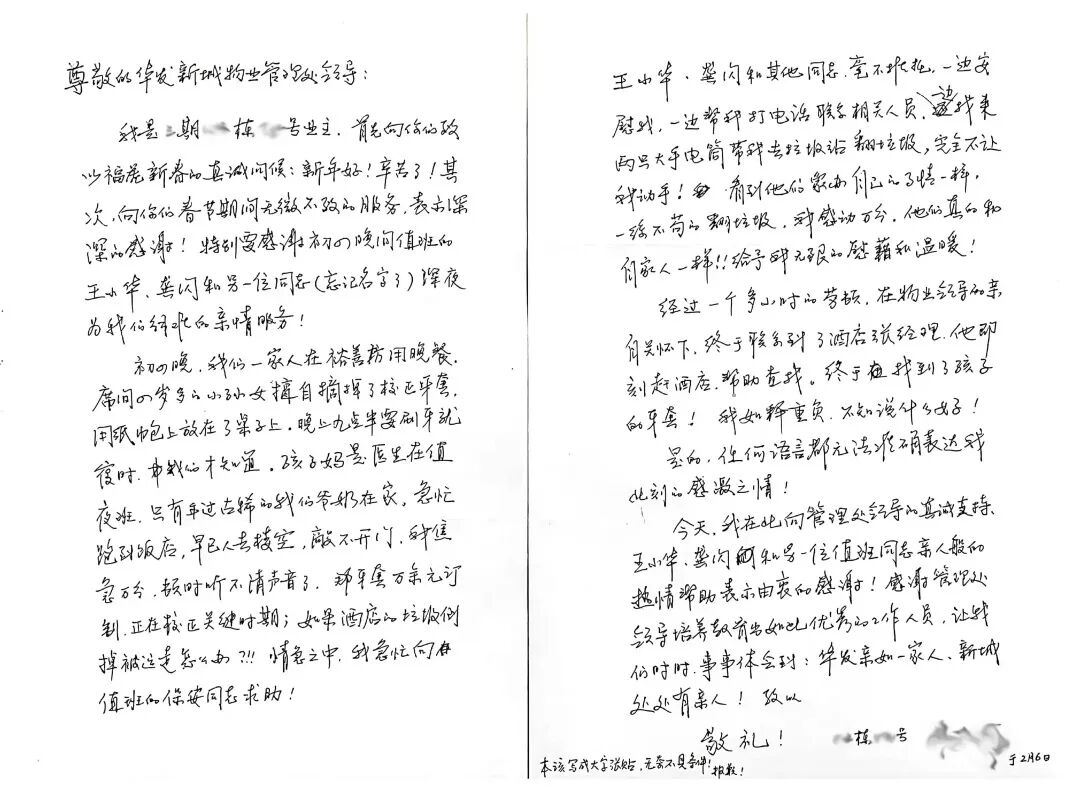 尊敬的华发新城物业管理处领导：
我是三期 栋 号业主．首先向你们致
以福虎新春的真诚问候：新年好！辛苦了！其
次，向你们春节期间无微不致的服务，表示深
深的感谢！特别要感谢初四晚间值班的
王小华、龚闪和另一位同志（忘记名字了）深夜
为我们 的亲情服务！
初四晚，我们一家人在裕善坊用晚餐．
席间四岁多的小孙女擅自摘掉了校正牙套，
用纸巾包上放在了桌子上．晚上九点半要刷牙就
寝时，我们才知道．孩子妈是医生在值
夜班，只有年过古稀的我们爷奶在家，急忙
跑到饭店，早已人去楼空，敲不开门，我焦
急万分，顿时听不清声音了．那牙套万余元订
制，正在校正关键时期；如果酒店的垃圾倒
掉被这是怎么办？!!! 情急之中，我急忙向
值班的保安同志求助！
王小华、龚闪和其他同志，毫不推拖，一边安
慰我，一边帮我打电话联系相关人员，边找来
两只大手电筒带我去垃圾站翻垃圾，完全不让
我动手！看到他们家办自己的事情一样，
一丝不苟的翻垃圾，我感动万分，他们真的和
自家人一样!!给予我无限的慰藉和温暖！
经过一个多小时的劳顿，在物业领导的亲
自关怀下，终于联系到了酒店张经理，他即
刻赶酒店，帮助查找。终于找到了孩子
的牙套！我如释重负，不知说什么好！
是的，任何语言都无法准确表达我
此刻的感激之情！
今天，我在此向管理处领导的真诚支持、
王小华、龚闪和另一位值班同志亲人般的
热情帮助表示由衷的感谢！感谢管理处
领导培养教育出如此优秀的工作人员，让我
们时时、事事体会到：华发亲如一家人、新城
处处有亲人！致以
敬礼！
栋 号
于2月6日
本该写成大字张贴，无奈不具条件！
抱歉！